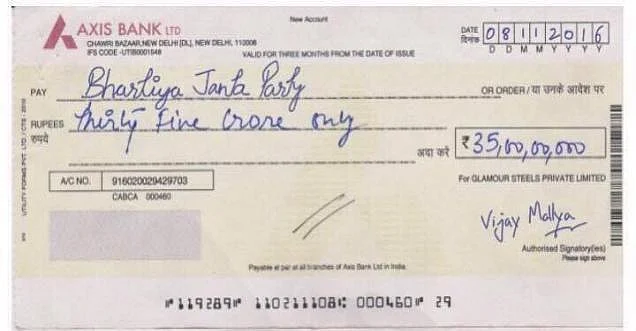 New Account
AXIS BANK LTD
CHAWRI BAZAAR,NEW DELHI [DL], NEW DELHI, 110006
IFS CODE -UTIB0001548
VALID FOR THREE MONTHS FROM THE DATE OF ISSUE
DATE दिनांक 08112016
D D M M Y Y Y Y
PAY Bhartiya Janta Party OR ORDER / या उनके आदेश पर
RUPEES रुपये Thirty Five Crore only
अदा करे ₹ 35,00,00,000
A/C NO. 916020029429703
CABCA 000460
For GLAMOUR STEELS PRIVATE LIMITED
Vijay Mallya
Authorised Signatory(ies)
Please sign above
Payable at par at all branches of Axis Bank Ltd in India.
UTILITY FORMS PVT. LTD. / CTS - 2010
⑈119289⑈ 110211108⑆ 000460⑈ 29